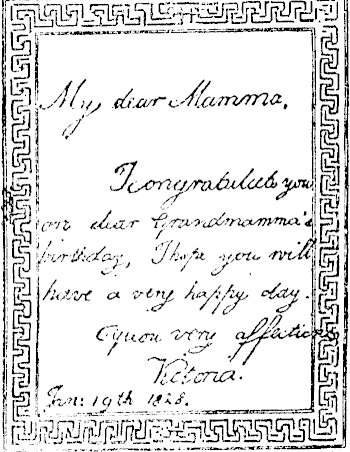 My dear Mamma,
I congratulate you
on dear Grandmamma's
birthday, I hope you will
have a very happy day.
Your very affection
Victoria.
Jan: 19th 1828.